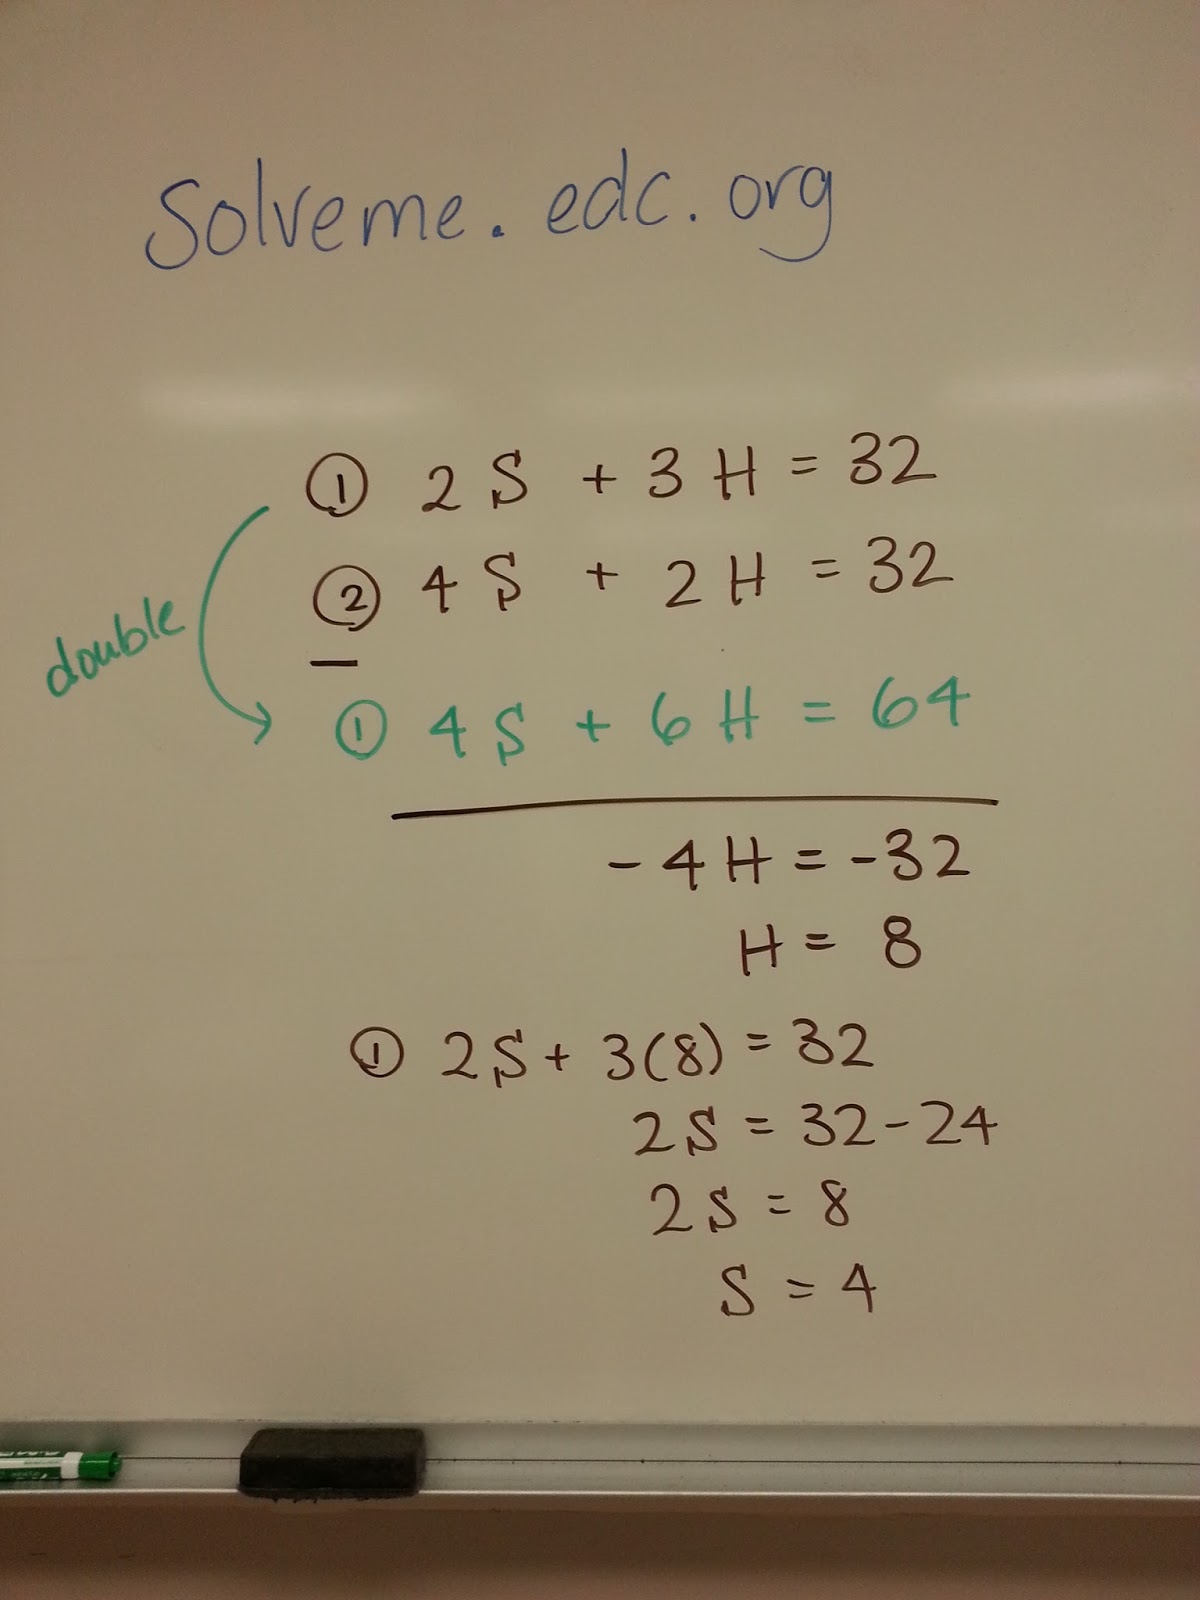 Solveme.edc.org
① 2S + 3H = 32
② 4S + 2H = 32
double
—
① 4S + 6H = 64
-4H = -32
H = 8
① 2S + 3(8) = 32
2S = 32-24
2S = 8
S = 4